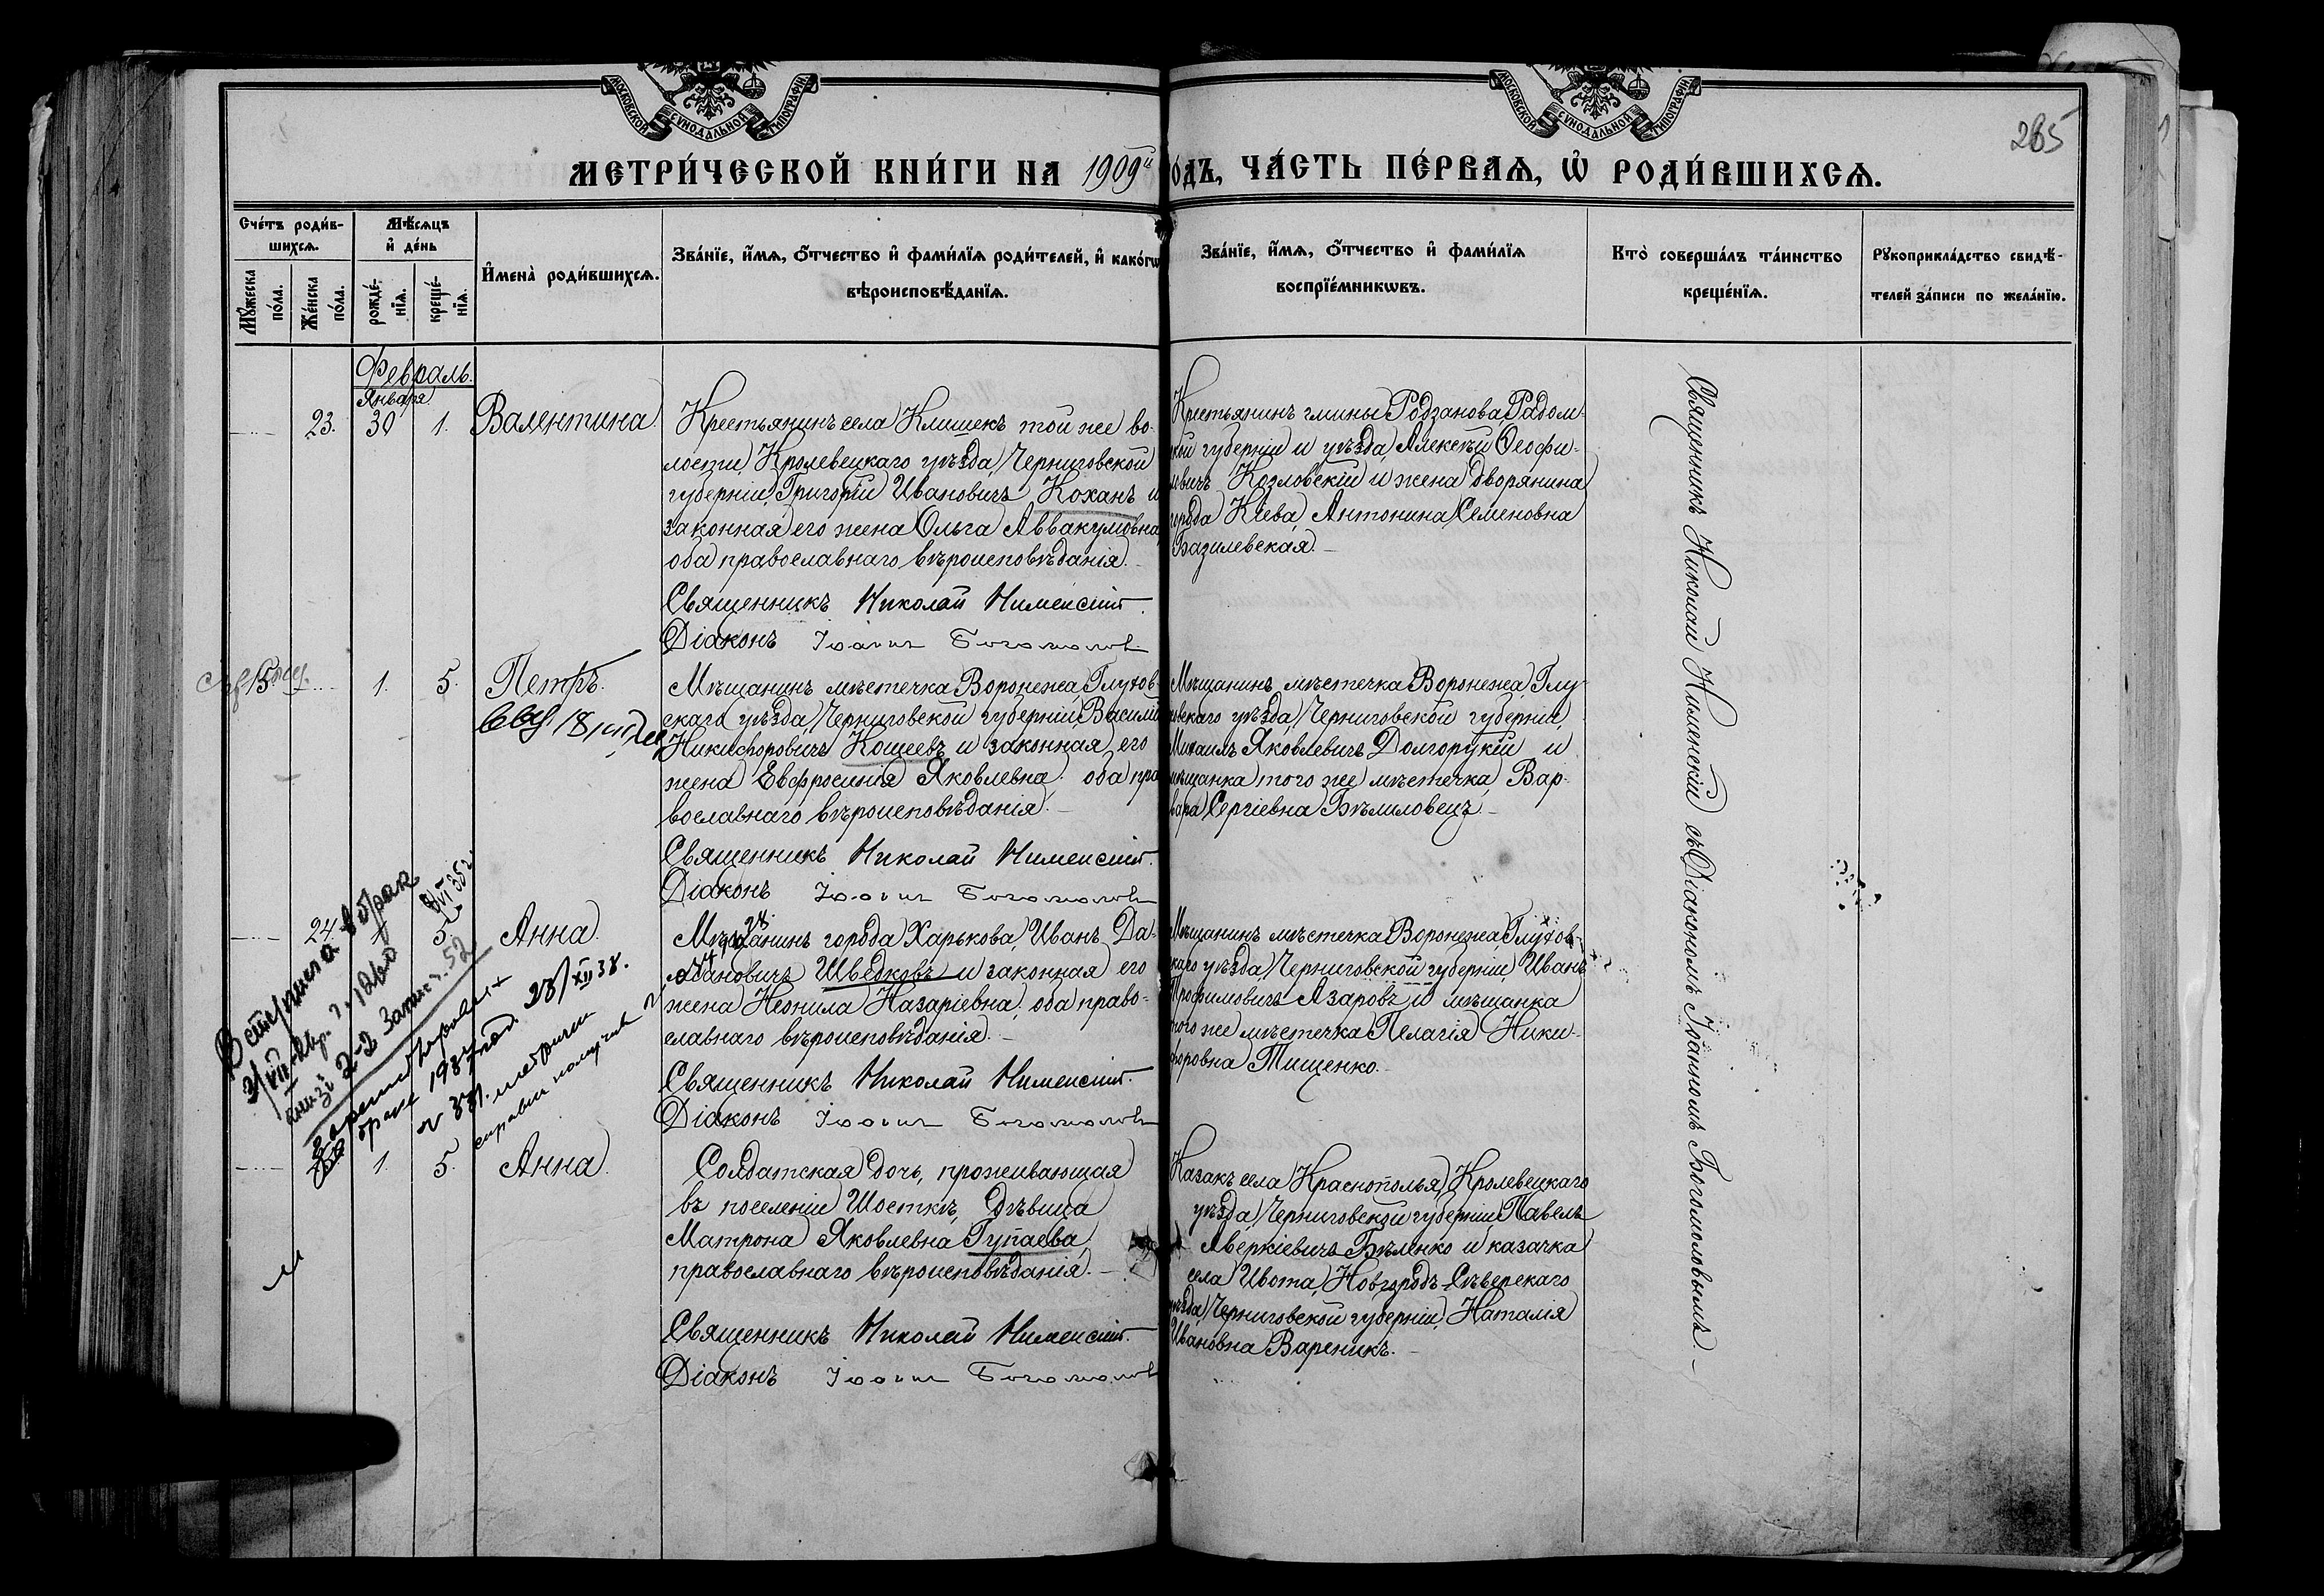 МОСКОВСКОЙ СУНОДАЛЬНОЙ ТИПОГРАФІИ
МОСКОВСКОЙ СУНОДАЛЬНОЙ ТИПОГРАФІИ
265
МЕТРИ́ЧЕСКОЙ КНИ́ГИ НА 1909й
ГО́ДЪ, ЧА́СТЬ ПЕ́РВАѦ, Ѡ҆ РОДИ́ВШИХСѦ.
Сче́тъ роди́в-
шихсѧ.
Мꙋ́жеска
по́ла.
Же́нска
по́ла.
Мѣ́сѧцъ
и҆ де́нь
рожде́-
нїѧ.
креще́-
нїѧ.
И҆мена̀ роди́вшихсѧ.
Зва́нїе, и҆́мѧ, ѻ҆́тчество и҆ фами́лїѧ роди́телей, и҆ како́гѡ
вѣроисповѣ́данїѧ.
Зва́нїе, и҆́мѧ, ѻ҆́тчество и҆ фами́лїѧ
воспрїе́мникѡвъ.
Кто̀ соверша́лъ та́инство
креще́нїѧ.
Рꙋкоприкла́дство свидѣ́-
телей за́писи по жела́нїю.
Февраль.
Января
23. 30 1. Валентина.
Крестьянинъ села Клишекъ той же во-
лости, Кролевецкаго уѣзда, Черниговской
губерніи, Григорій Ивановичъ Коханъ и
законная его жена Ольга Аввакумовна,
оба православнаго вѣроисповѣданія.
Священникъ Николай Нименскій.
Діаконъ Іоаннъ Богомоловъ
Крестьянинъ гмины Родзанова Радом-
ской губерніи и уѣзда, Алексѣй Ѳеофи-
ловичъ Козловскій и жена дворянина
города Кіева, Антонина Семеновна
Базилевская.
15. 1. 5. Петръ.
Мѣщанинъ мѣстечка Воронежа, Глухов-
скаго уѣзда, Черниговской губерніи, Василій
Никифоровичъ Кощеевъ и законная его
жена Евфросинія Яковлевна, оба пра-
вославнаго вѣроисповѣданія.
Священникъ Николай Нименскій.
Діаконъ Іоаннъ Богомоловъ
Мѣщанинъ мѣстечка Воронежа, Глу-
ховскаго уѣзда, Черниговской губерніи,
Михаилъ Яковлевичъ Долгорукій и
мѣщанка того же мѣстечка, Вар-
вара Сергіевна Бѣлиловецъ.
24. 1. 5. Анна.
Мѣщанинъ города Харькова, Иванъ Да-
Шведковъ и законная его
жена Неонила Назаріевна, оба право-
славнаго вѣроисповѣданія.
Священникъ Николай Нименскій.
Діаконъ Іоаннъ Богомоловъ
Мѣщанинъ мѣстечка Воронежа, Глухов-
скаго уѣзда, Черниговской губерніи, Иванъ
Трофимовичъ Азаровъ и мѣщанка
того же мѣстечка Пелагія Ники-
форовна Тищенко.
Вступила в брак
1. 5. Анна.
Солдатская дочь, проживающая
въ поселеніи Шосткѣ, дѣвица
Матрона Яковлевна Гупаева,
православнаго вѣроисповѣданія.
Священникъ Николай Нименскій.
Діаконъ Іоаннъ Богомоловъ
Казакъ села Краснополья, Кролевецкаго
уѣзда, Черниговской губерніи, Павелъ
Аверкіевичъ Бѣленко и казачка
села Ивота, Новгородъ-Сѣверскаго
уѣзда, Черниговской губерніи, Наталія
Ивановна Вареникъ.
Священникъ Николай Нименскій съ Діакономъ Іоанномъ Богомоловымъ.